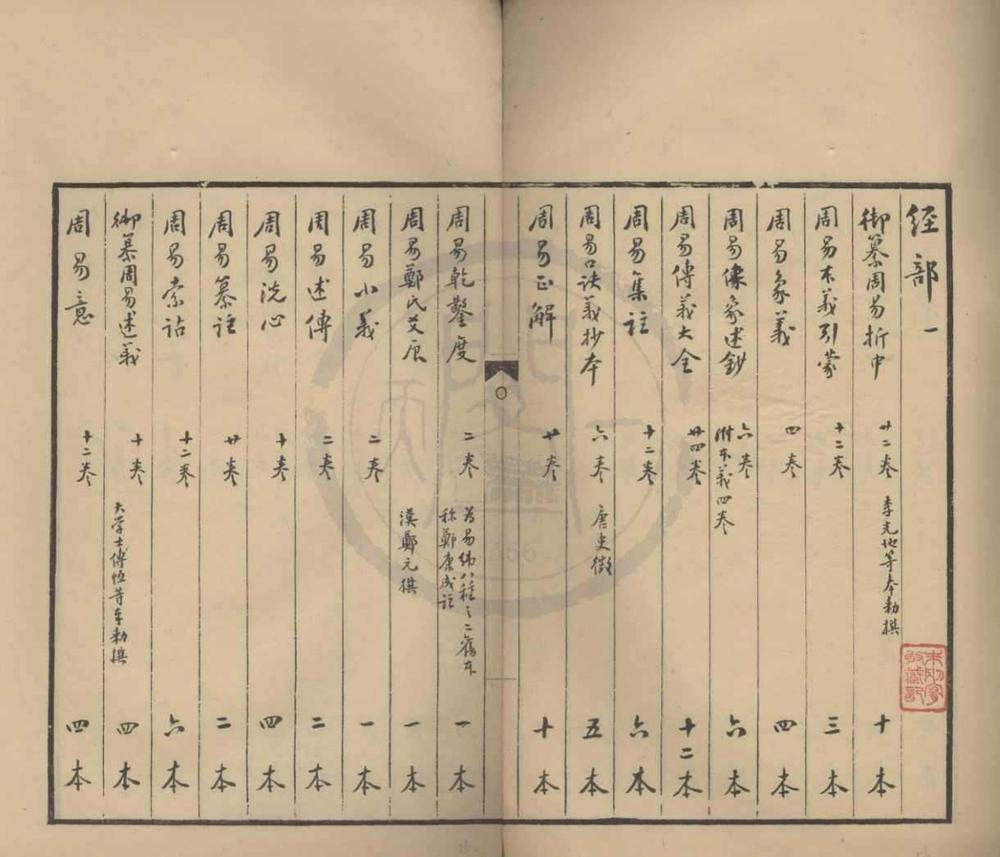 经部一
御纂周易折中 廿二卷 李光地等奉勅撰 十本
周易本義引蒙 十二卷 三本
周易象義 四卷 四本
周易像象述鈔 六卷 附本義四卷 六本
周易傳義大全 廿四卷 十二本
周易集註 十二卷 六本
周易口訣義抄本 六卷 唐史徵 五本
周易正解 廿卷 十本
周易乾鑿度 二卷 爲易緯八種之二舊本称鄭康成註 一本
周易鄭氏爻辰 漢鄭元撰 一本
周易小義 二卷 一本
周易述傳 二卷 二本
周易洗心 十卷 四本
周易纂註 廿卷 二本
周易索詁 十二卷 六本
御纂周易述義 十卷 大学士傅恒等奉勅撰 四本
周易意 十二卷 四本